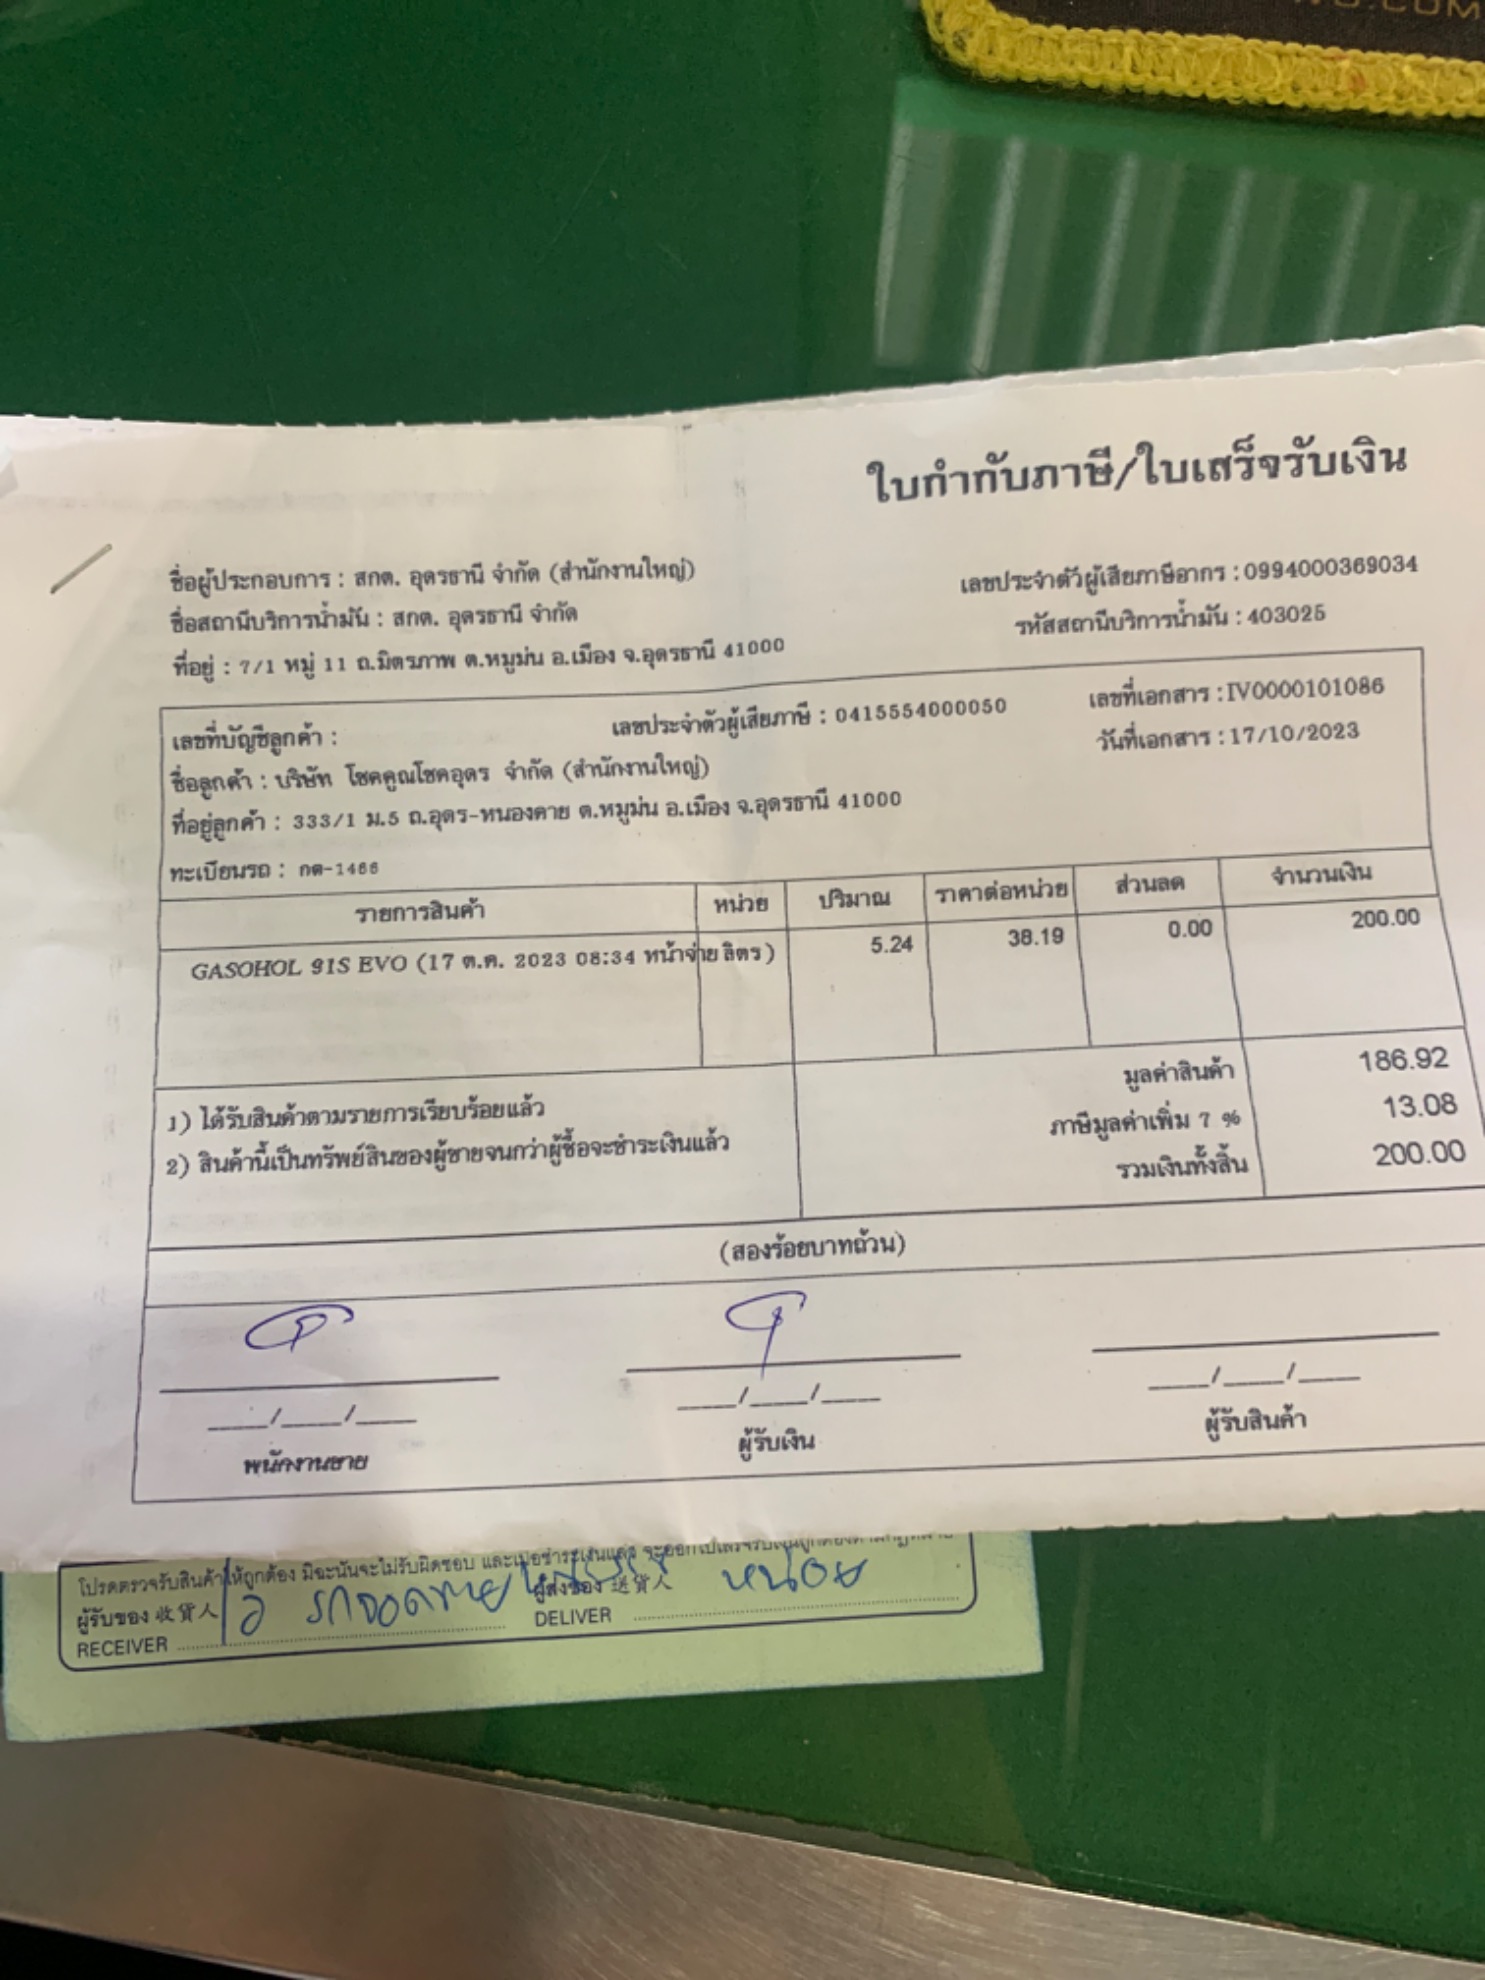 .COM
ใบกำกับภาษี/ใบเสร็จรับเงิน
ชื่อผู้ประกอบการ : สกต. อุดรธานี จำกัด (สำนักงานใหญ่)
เลขประจำตัวผู้เสียภาษีอากร : 0994000369034
ชื่อสถานีบริการน้ำมัน : สกต. อุดรธานี จำกัด
รหัสสถานีบริการน้ำมัน : 403025
ที่อยู่ : 7/1 หมู่ 11 ถ.มิตรภาพ ต.หมูม่น อ.เมือง จ.อุดรธานี 41000
เลขที่บัญชีลูกค้า : เลขประจำตัวผู้เสียภาษี : 0415554000050 เลขที่เอกสาร : IV0000101086
ชื่อลูกค้า : บริษัท โชคคูณโชคอุดร จำกัด (สำนักงานใหญ่) วันที่เอกสาร : 17/10/2023
ที่อยู่ลูกค้า : 333/1 ม.5 ถ.อุดร-หนองคาย ต.หมูม่น อ.เมือง จ.อุดรธานี 41000
ทะเบียนรถ : กต-1466
รายการสินค้า หน่วย ปริมาณ ราคาต่อหน่วย ส่วนลด จำนวนเงิน
GASOHOL 91S EVO (17 ต.ค. 2023 08:34 หน้าจ่าย ลิตร ) 5.24 38.19 0.00 200.00
มูลค่าสินค้า 186.92
1) ได้รับสินค้าตามรายการเรียบร้อยแล้ว
ภาษีมูลค่าเพิ่ม 7 % 13.08
2) สินค้านี้เป็นทรัพย์สินของผู้ขายจนกว่าผู้ซื้อจะชำระเงินแล้ว
รวมเงินทั้งสิ้น 200.00
(สองร้อยบาทถ้วน)
____/____/____ ____/____/____ ____/____/____
พนักงานขาย ผู้รับเงิน ผู้รับสินค้า
โปรดตรวจรับสินค้าให้ถูกต้อง มิฉะนั้นจะไม่รับผิดชอบ และเมื่อชำระเงินแล้ว
ผู้รับของ 收貨人 ผู้ส่งของ 送貨人 หน่อย
RECEIVER DELIVER